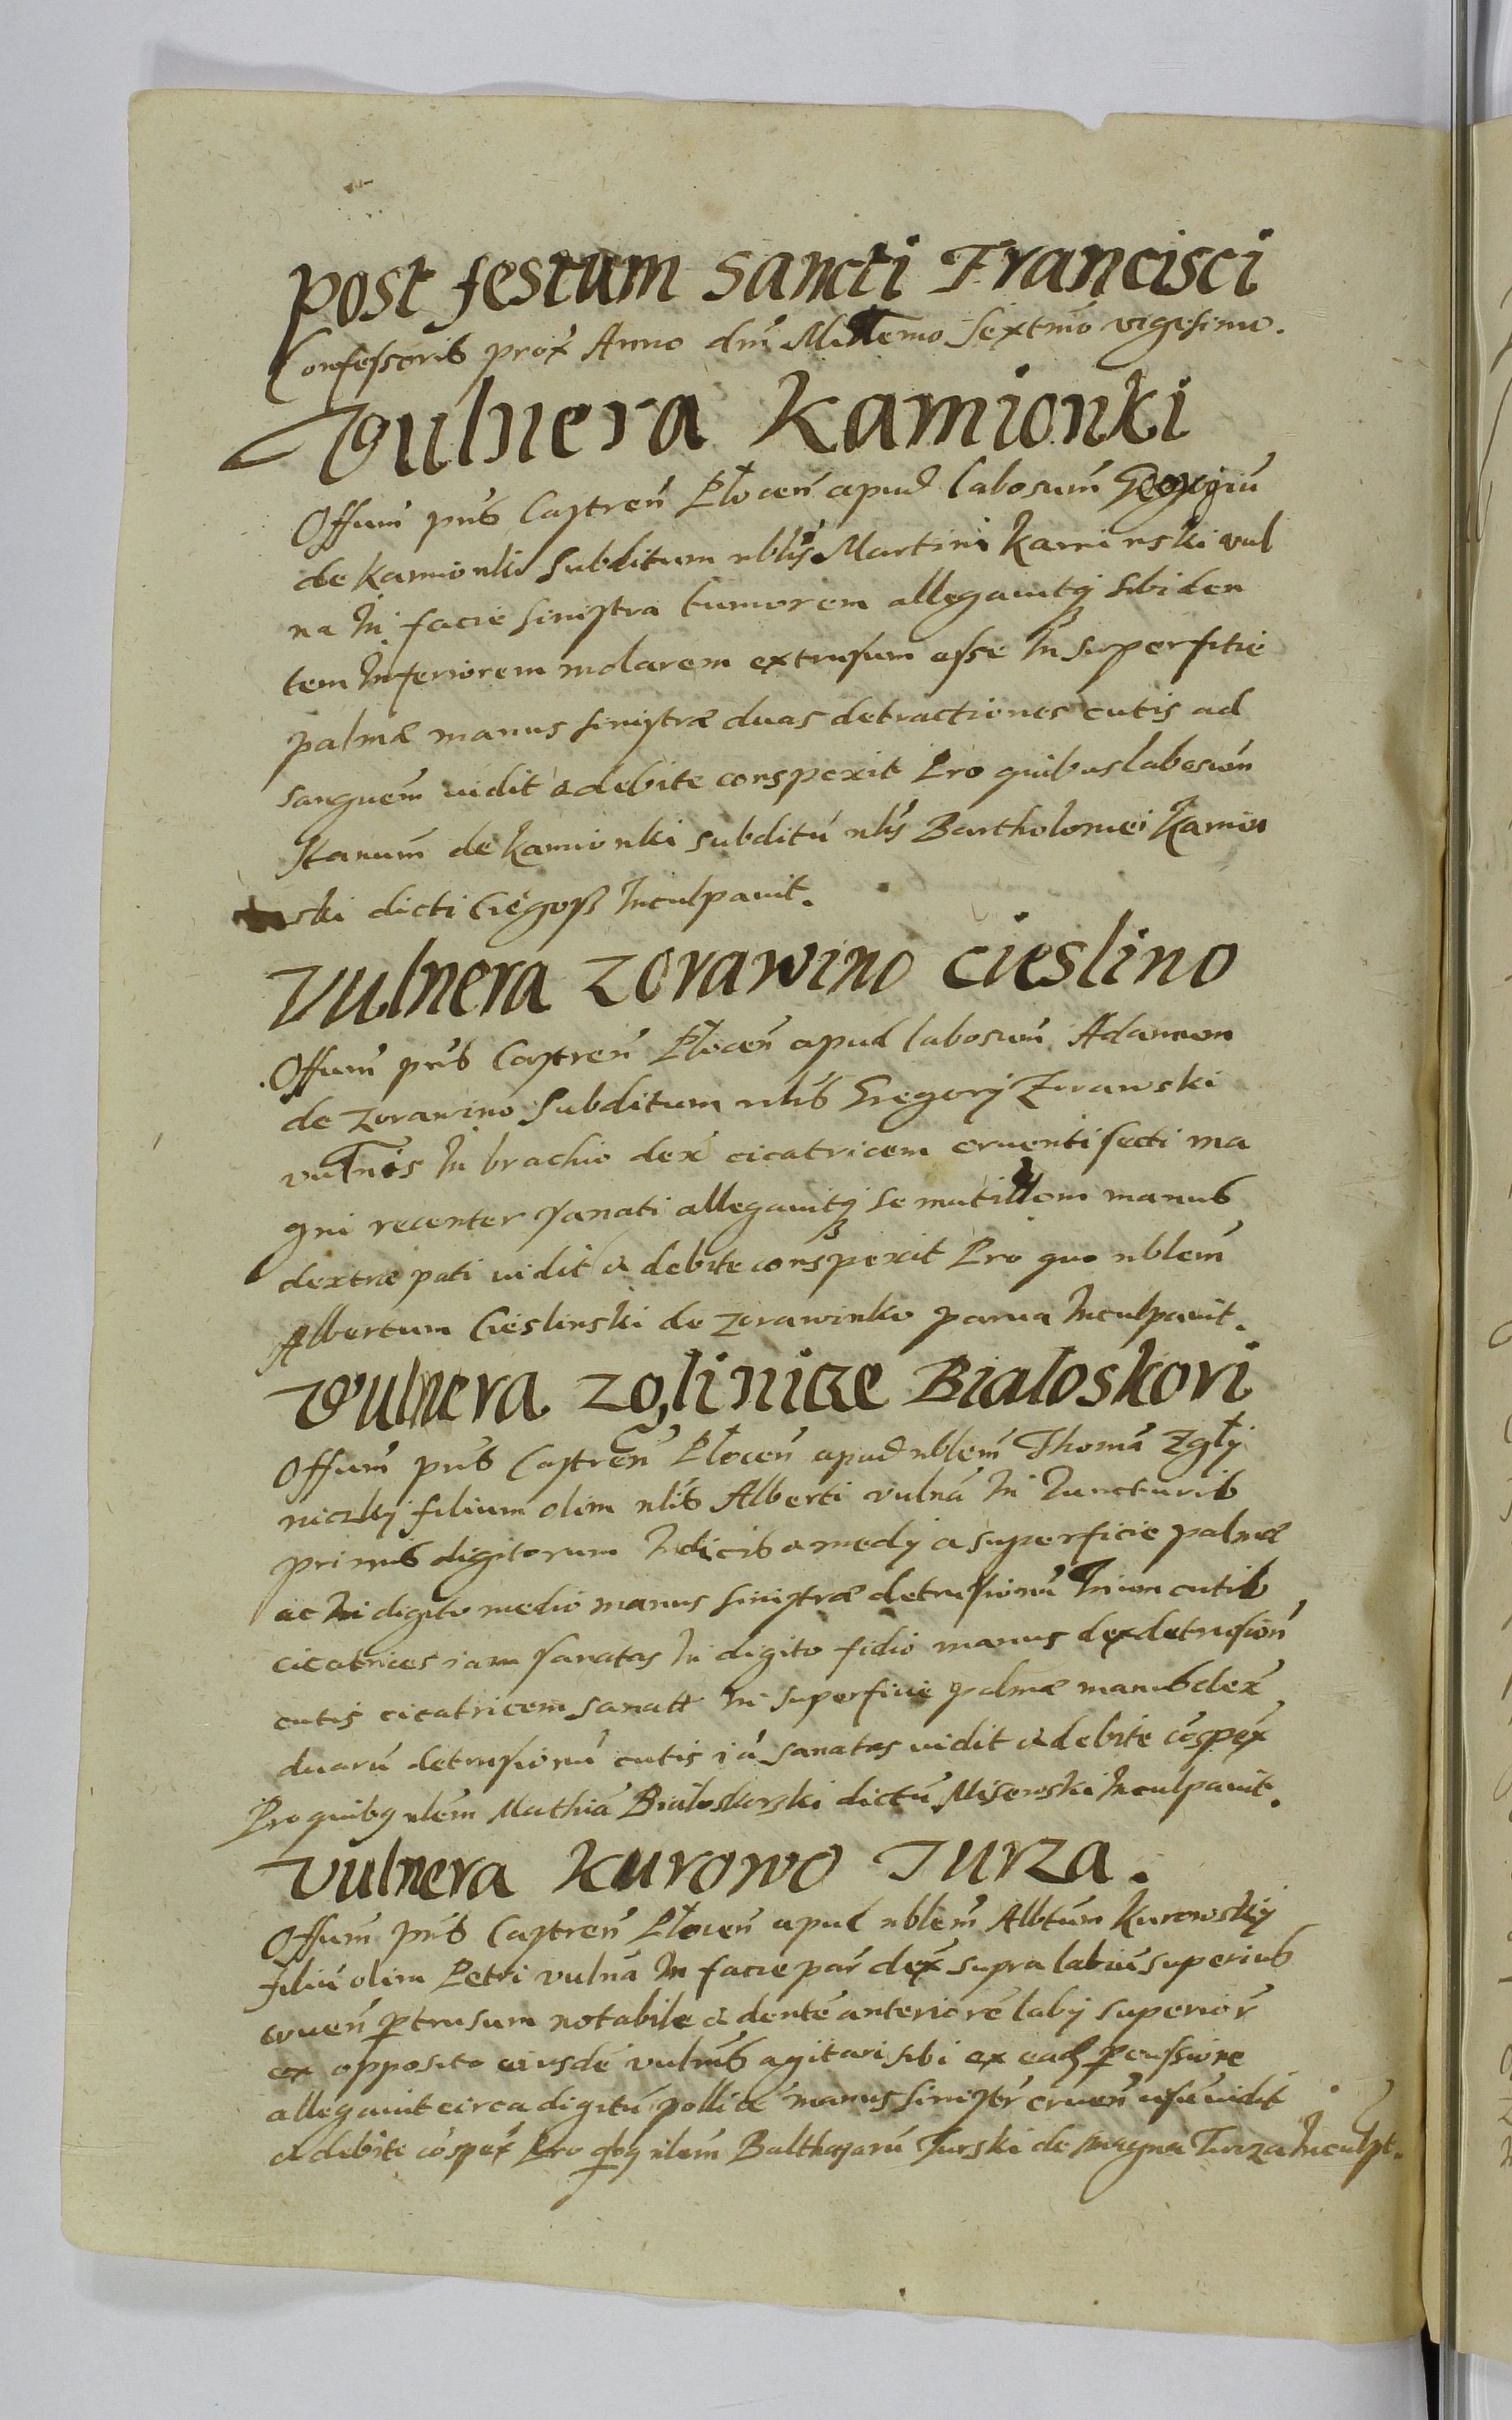 Post festum Sancti Francisci
Confessoris prox Anno dni Millemo Sextmo vigesimo.
Vulnera Kamionki
Offium pns Castren Płocen apud labosum Georgiu
de Kamionki Subditum nblis Martini Kaminski vul
na In facie sinistra tumorem allegavitq sibi den
tem Inferiorem molarem extrusum esse In superfitie
palmæ manus sinistræ duas detractiones cutis ad
sanguem vidit & debite conspexit Pro quibus labosum
Stanum de Kamionki subditu nlis Bartholomei Kamio
ski dicti Ciegosz Inculpavit.
Vulnera Zorawino Cieslino
Offium pns Castren Płocen apud labosum Adamum
de Zorawino Subditum nlis Gregorij Zorawski
vulnis In brachio dex cicatricem cruenti secti ma
gni recenter sanati allegavitq se mutillom manus
dextræ pati vidit & debite conspexit Pro quo nblem
Albertum Cieslinski de Zorawinko parva Inculpavit.
Vulnera Zglinicze Białoskori
Offium pns Castren Płocen apud nblem Thoma Zgłi
niczkij filium olim nlis Alberti vulna In Iuncturis
primis digitorum Indicis & medij a superficie palmæ
ac In digito medio manus sinistræ detrusionu trium cutis
cicatrices iam sanatas In digito fidio manus dex detrusion
cutis cicatricem sanatt In superficie palmæ manus dex
duaru detrusionu cutis ia sanatas vidit & debite cospex
Pro quibq nlem Mathia Białoskorski dictu Misewski Inculpavit.
Vulnera Kurowo Turza.
Offium pns Castren Płocen apud nblem Albtum Kurowskij
filiu olim Petri vulna In facie par dex supra labiu superius
cruen ptrusum notabile & dente anteriore labij superior
ex opposito eiusde vulnis agitari sibi ex ead pcussione
allegavit circa digitu pollice manus sinistr cruen vidit
& debite cospex Pro qbq nlem Balthazaru Turski de magna Turza Inculpt.